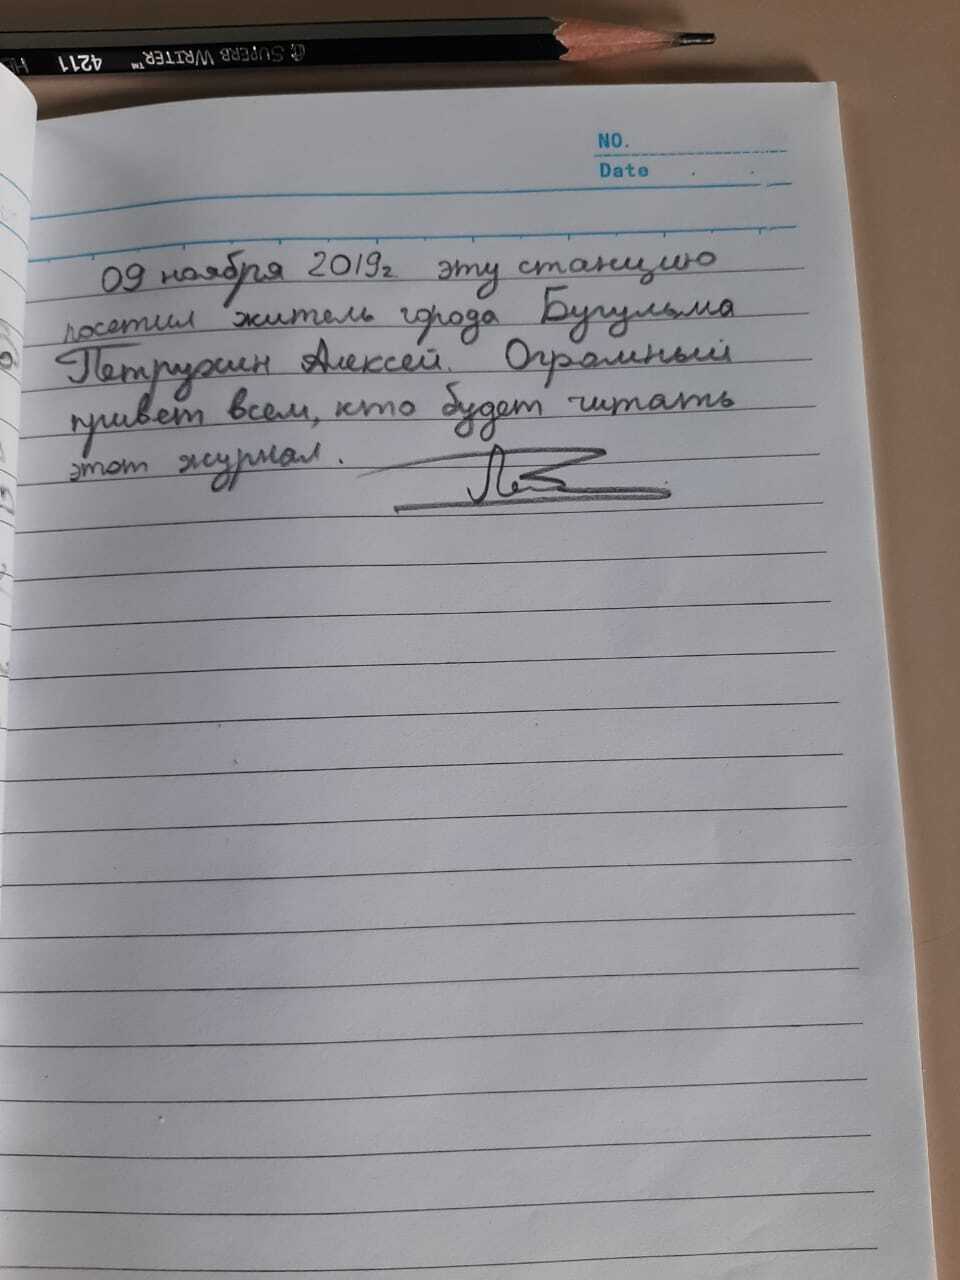 SUPERB WRITER™ 4211
NO.
Date
09 ноября 2019г эту станцию
посетил житель города Бугульма
Петрухин Алексей. Огромный
привет всем, кто будет читать
этот журнал.